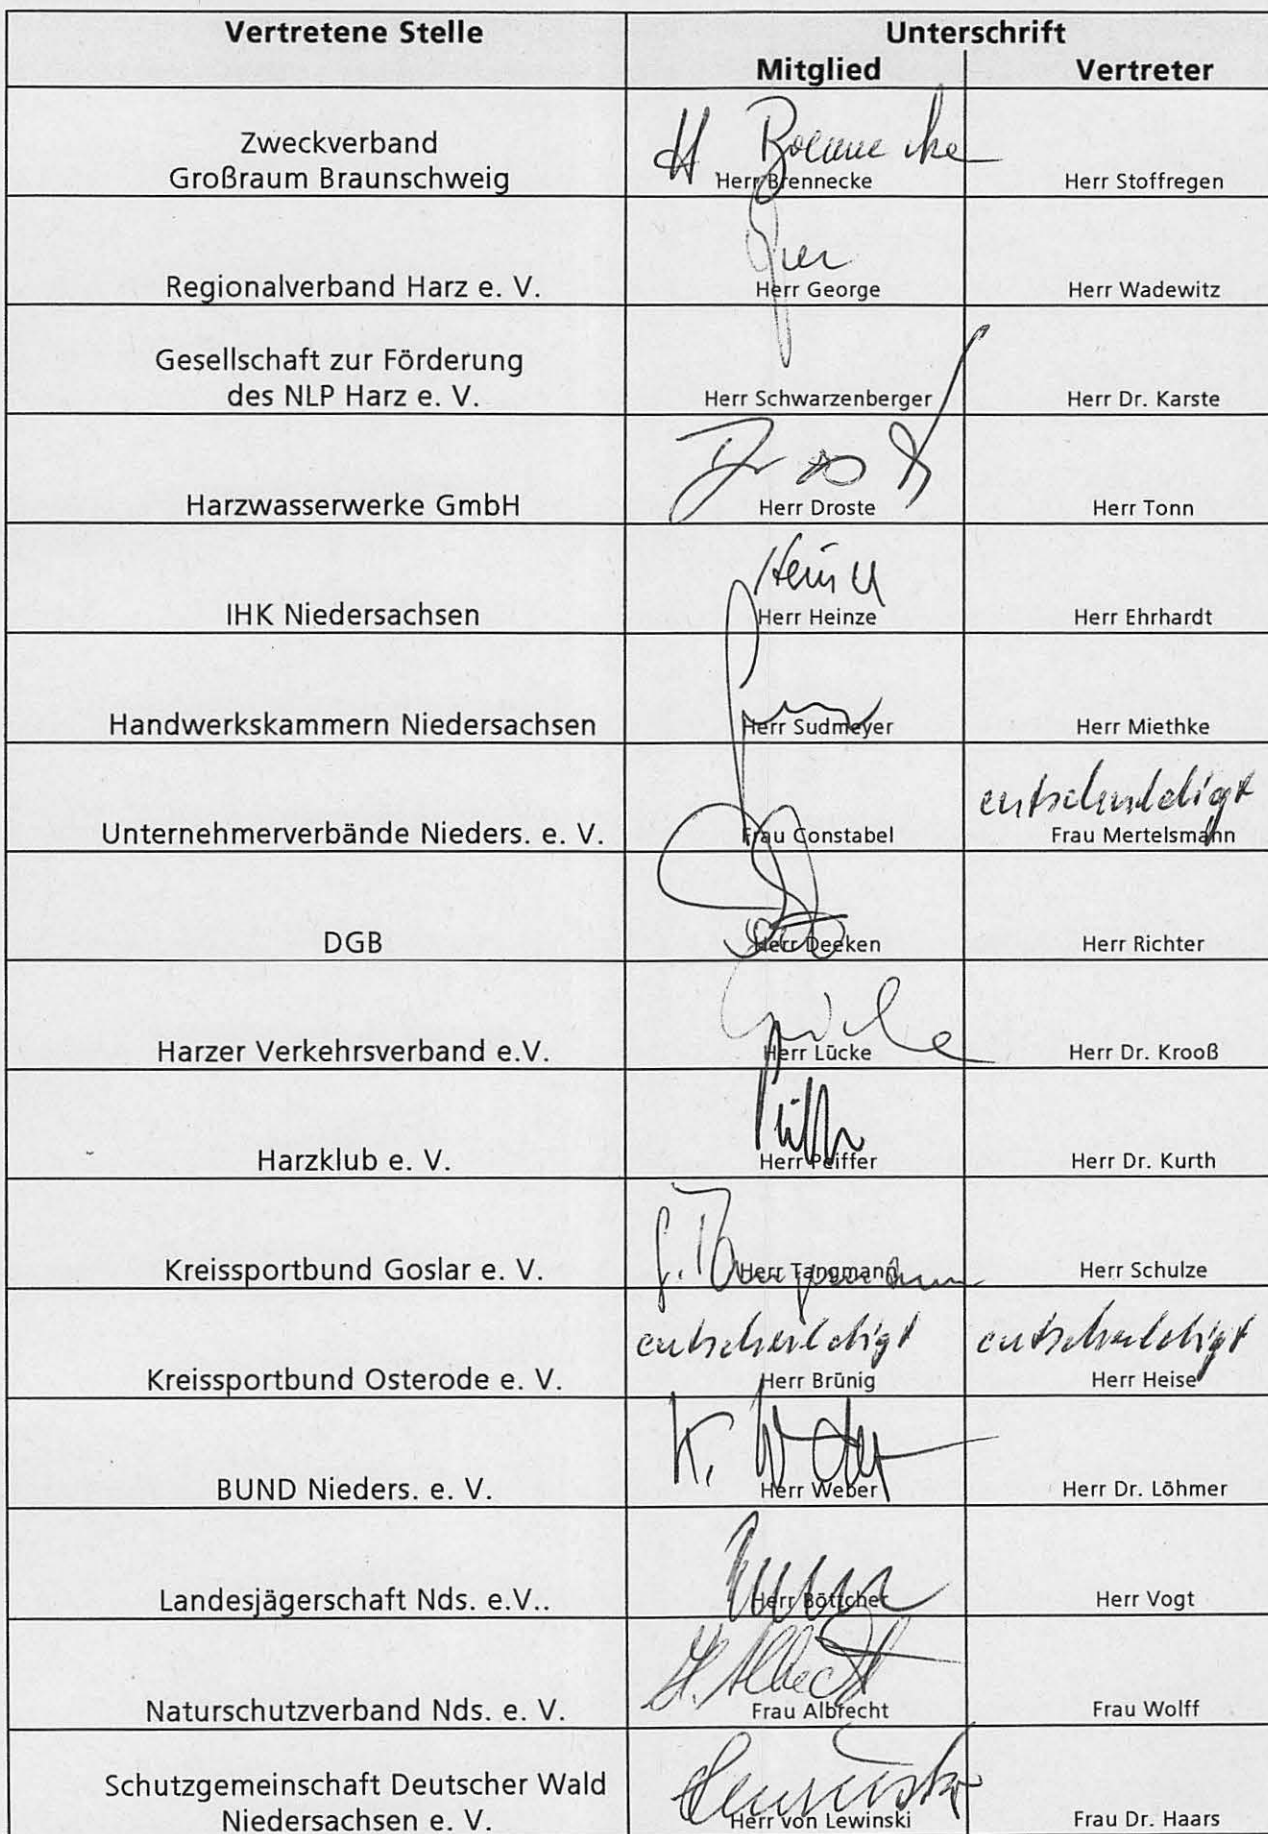 Vertretene Stelle
Unterschrift
Mitglied
Vertreter
Zweckverband
Großraum Braunschweig
H Brennecke
Herr Brennecke
Herr Stoffregen
Regionalverband Harz e. V.
Herr George
Herr Wadewitz
Gesellschaft zur Förderung
des NLP Harz e. V.
Herr Schwarzenberger
Herr Dr. Karste
Harzwasserwerke GmbH
Herr Droste
Herr Tonn
IHK Niedersachsen
Herr Heinze
Herr Ehrhardt
Handwerkskammern Niedersachsen
Herr Sudmeyer
Herr Miethke
Unternehmerverbände Nieders. e. V.
Frau Constabel
entschuldigt
Frau Mertelsmann
DGB
Herr Deeken
Herr Richter
Harzer Verkehrsverband e.V.
Herr Lücke
Herr Dr. Krooß
Harzklub e. V.
Herr Peiffer
Herr Dr. Kurth
Kreissportbund Goslar e. V.
Herr Tangmann
Herr Schulze
Kreissportbund Osterode e. V.
entschuldigt
Herr Brünig
entschuldigt
Herr Heise
BUND Nieders. e. V.
K. Weber
Herr Weber
Herr Dr. Löhmer
Landesjägerschaft Nds. e.V..
Herr Böttcher
Herr Vogt
Naturschutzverband Nds. e. V.
H. Albrecht
Frau Albrecht
Frau Wolff
Schutzgemeinschaft Deutscher Wald
Niedersachsen e. V.
Herr von Lewinski
Frau Dr. Haars